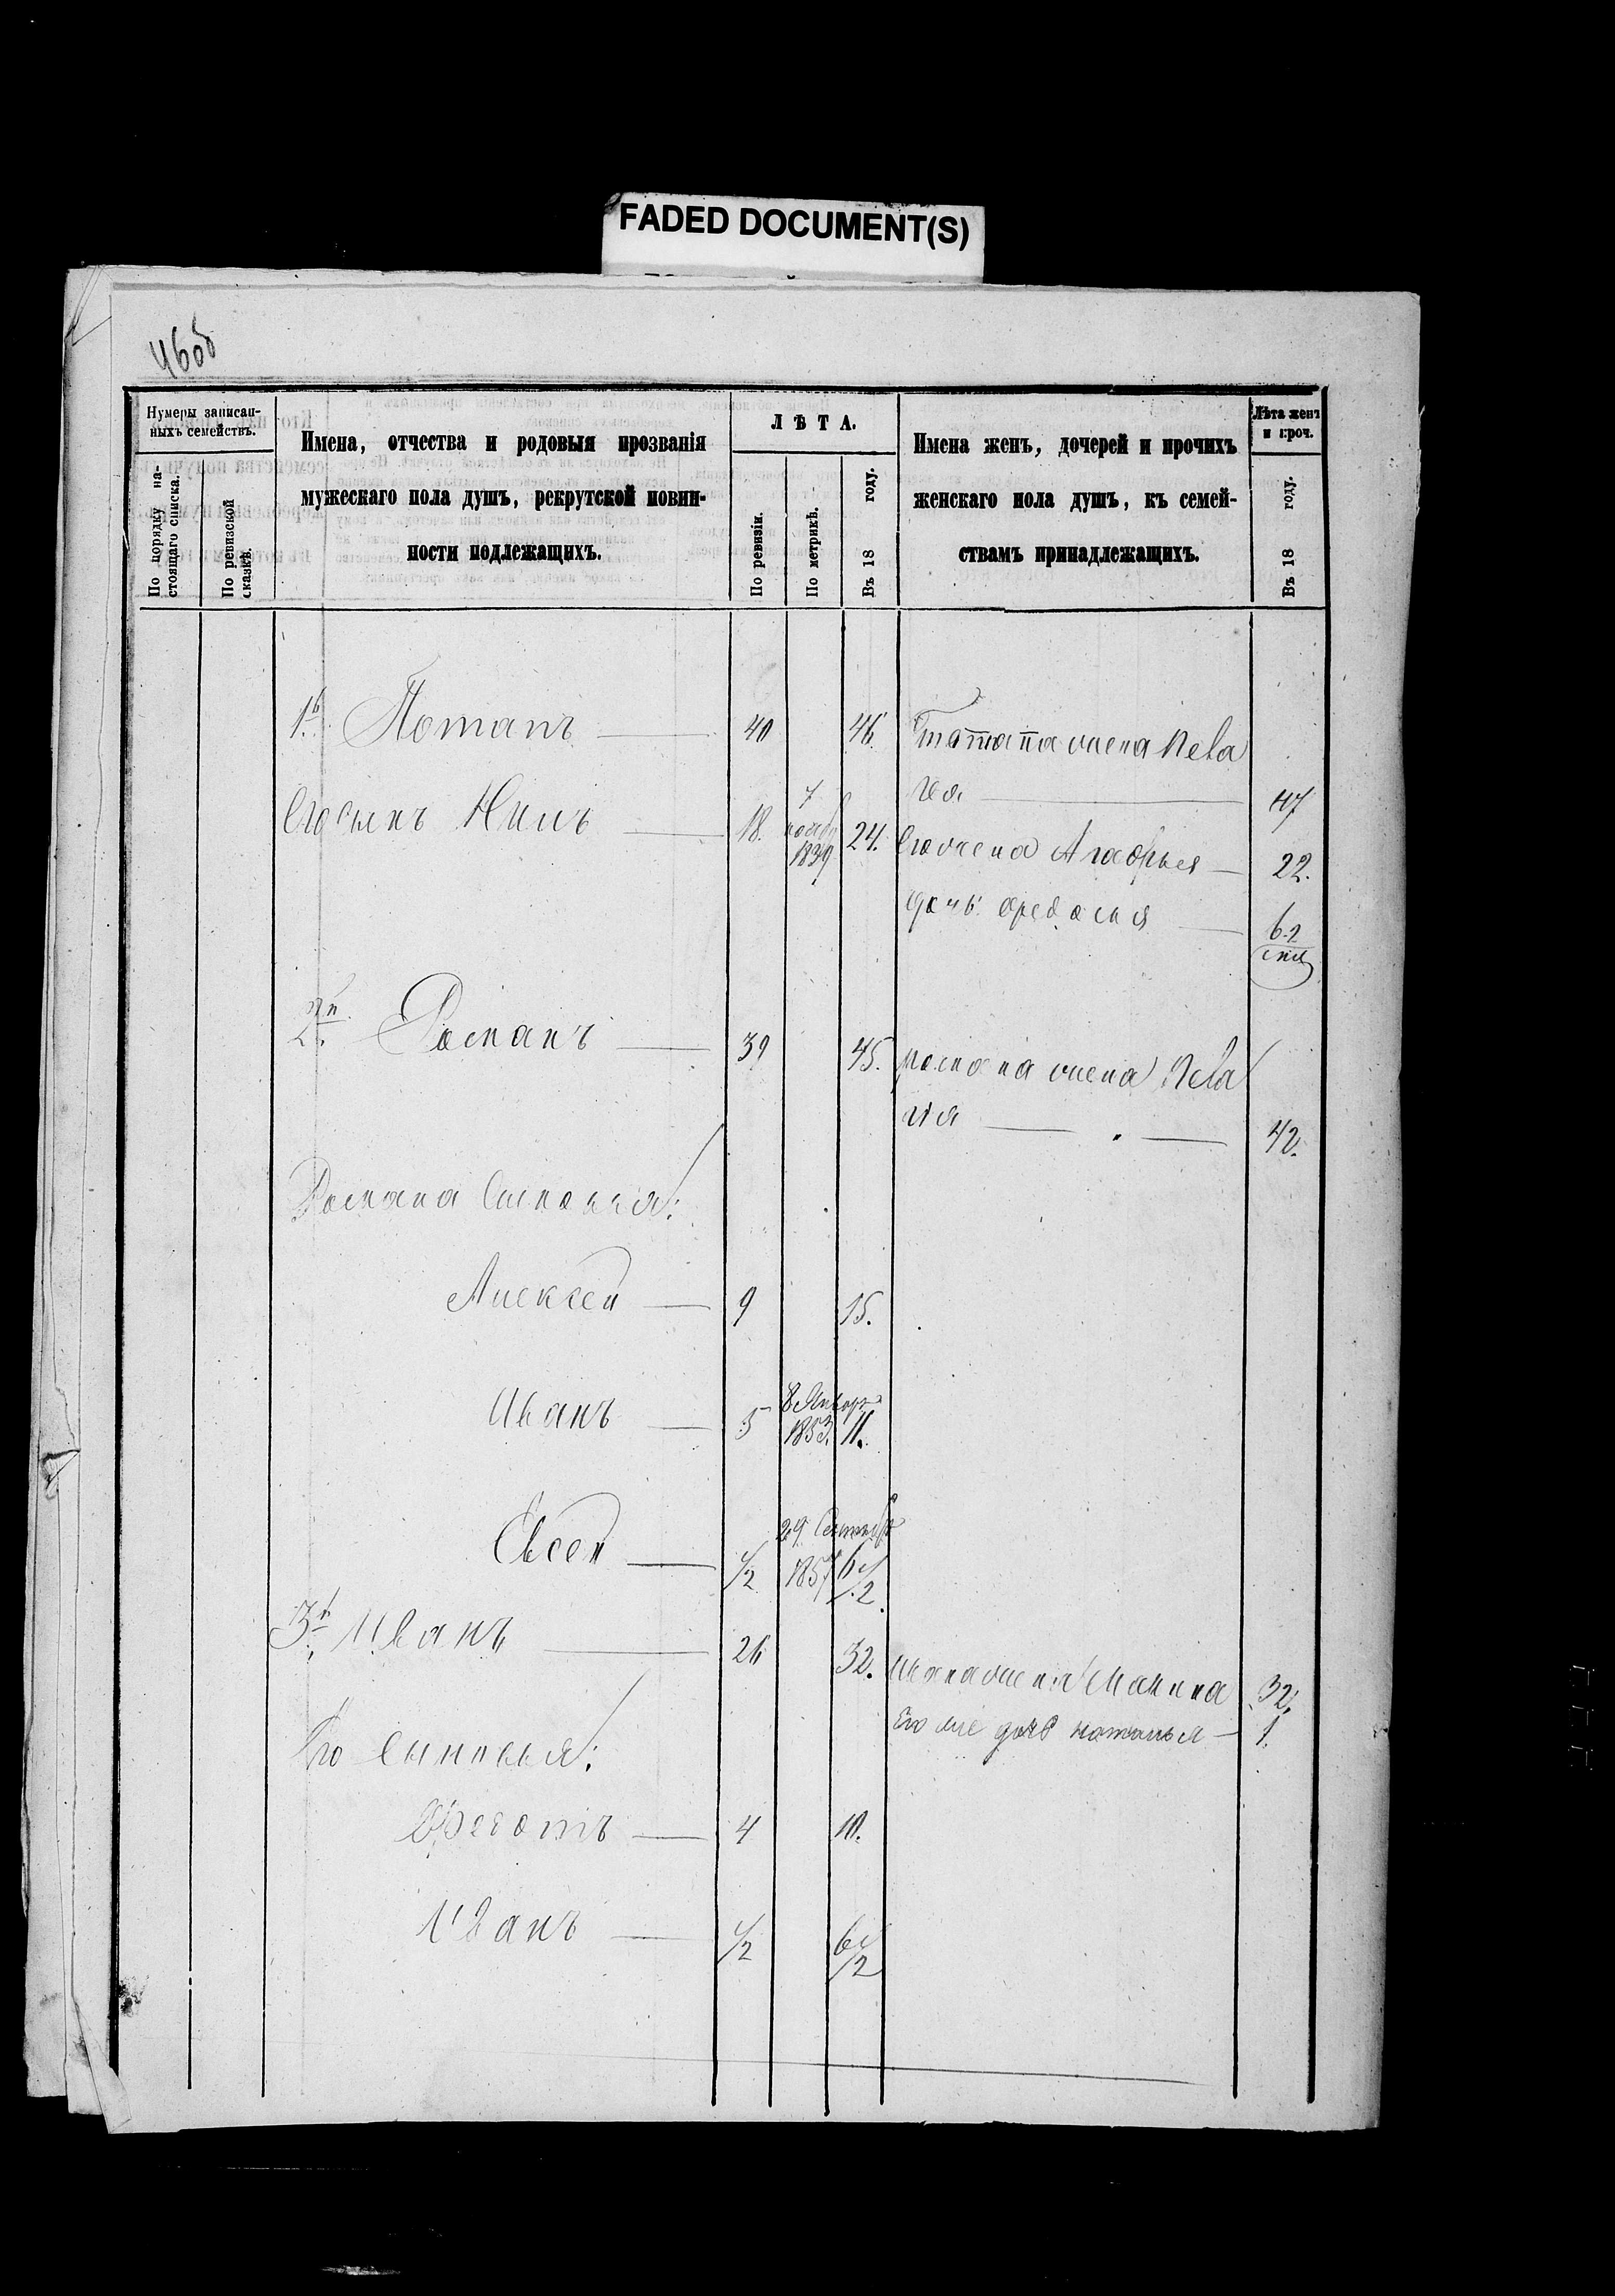 FADED DOCUMENT(S)
46об
Нумеры записан-
ныхъ семействъ.
По порядку на-
стоящаго списка.
По ревизской
сказкѣ.
Имена, отчества и родовыя прозванія
мужескаго пола душъ, рекрутской повин-
ности подлежащихъ.
ЛѢТА.
По ревизіи.
По метрикѣ.
Въ 18 году.
Имена женъ, дочерей и прочихъ
женскаго пола душъ, къ семей-
ствамъ принадлежащихъ.
Лѣта женъ
и проч.
Въ 18 году.
1й Потапъ 40 46. Потапа жена Пела
гея 47
Его сынъ Нилъ 18. 7 нояб 1839 24. Его жена Агафья 22.
дочь Федосья 6-2
2й Романъ 39 45. Романа жена Пела
гия 42.
Романа Сыновья:
Алексей 9 15.
Иванъ 5 8 Январ 1853. 11.
Евсей 1/2 29 Сентяб 1857 6 1/2.
3й Иванъ 26 32. Ивана жена Марина 32.
Его же дочь наталья 1.
Его Сыновья:
Федотъ 4 10.
Иванъ 1/2 6 1/2